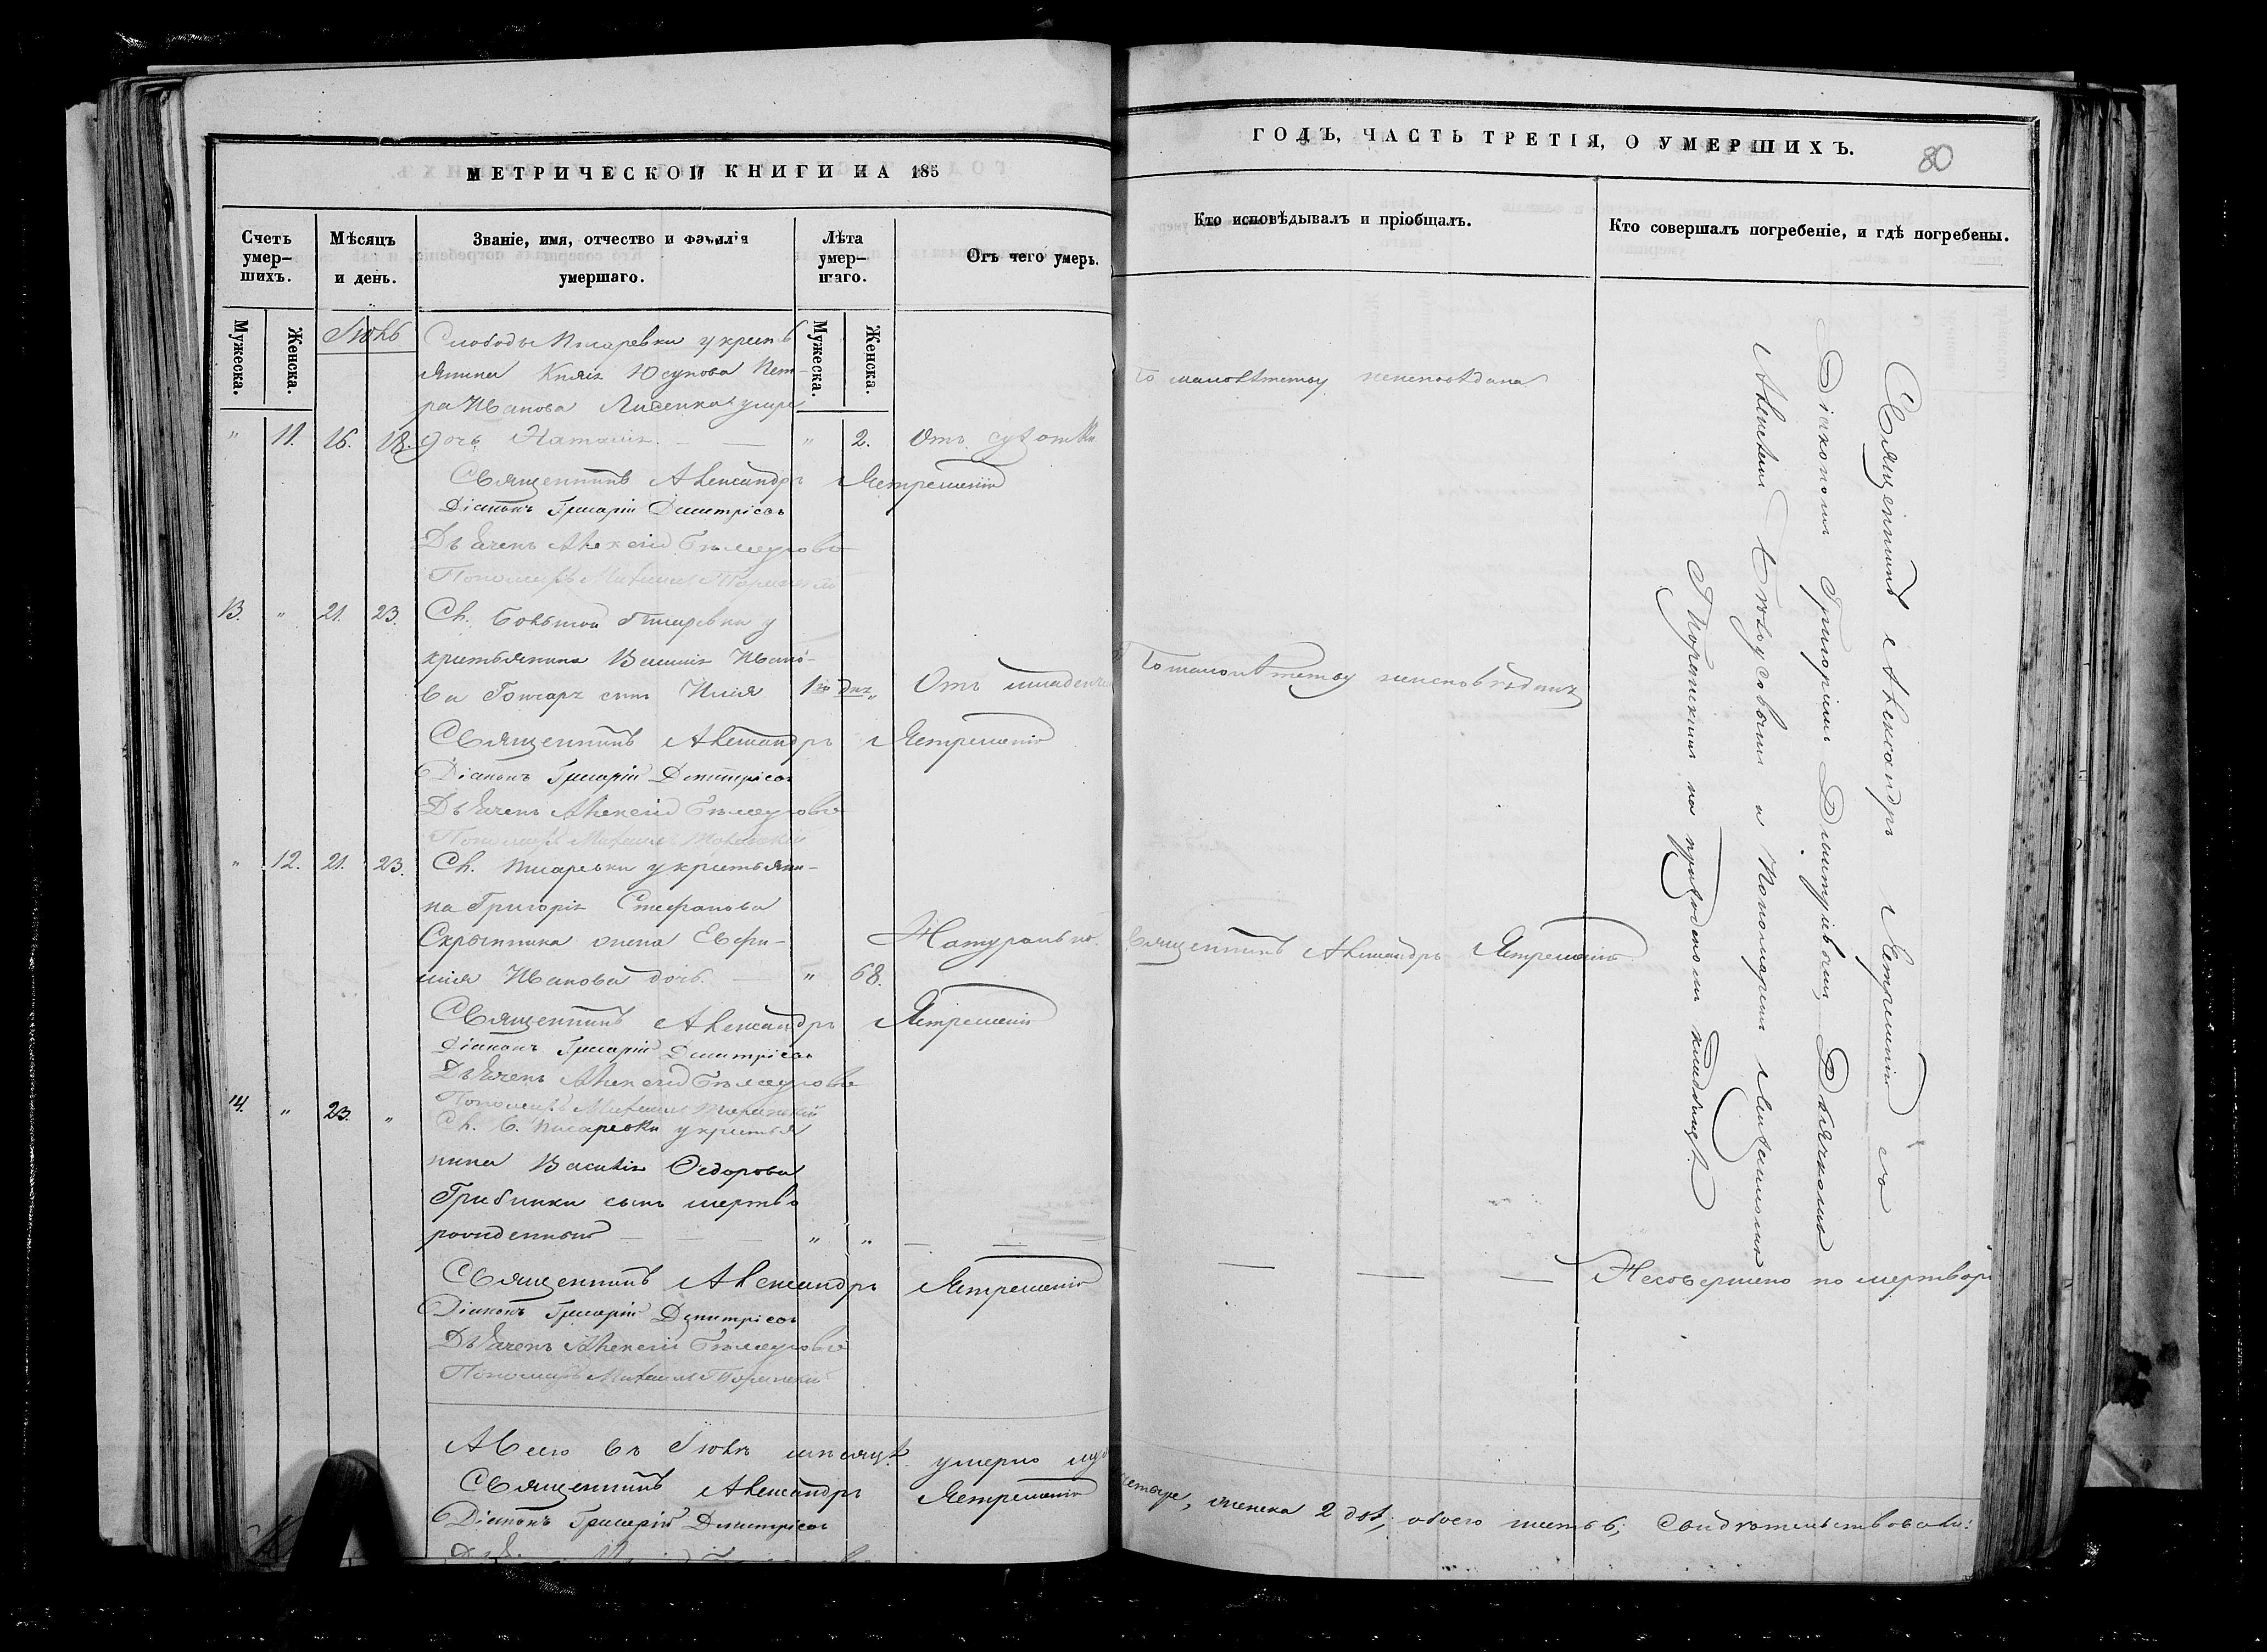 МЕТРИЧЕСКОЙ КНИГИ НА 185
Счетъ умер-
шихъ.
Мѣсяцъ
и день.
Званіе, имя, отчество и фамилія
умершаго.
Лѣта
умер-
шаго.
Отъ чего умеръ.
Мужеска.
Женска.
Мужеска.
Женска.
Іюль
Слободы Писаревки у кресть
янина Князя Юсупова Пет-
ра Иванова Лисенка умре
" 11. 16. 18. дочь Наталія. " 2. Отъ сухотки
Священникъ Александръ Ястремскій
Діаконъ Григорій Димитріевъ
Дьячекъ Алексѣй Бѣлоусовъ
Пономарь Михаилъ
13. " 21. 23. Сл. Большой Писаревки у
крестьянина Василія Ивано-
ва Гончара сынъ Илія 1го дня " Отъ младенч
Священникъ Александръ Ястремскій
Діаконъ Григорій Димитріевъ
Дьячекъ Алексѣй Бѣлоусовъ
Пономарь Михаилъ
" 12. 21. 23. Сл. Писаревки у крестьяни-
на Григорія Стефанова
Скрыпника жена Евфи- Натурально.
мія Иванова дочь. " 68.
Священникъ Александръ Ястремскій
Діаконъ Григорій Димитріевъ
Дьячекъ Алексѣй Бѣлоусовъ
Пономарь Михаилъ
14. " 23. " Сл. Б. Писаревки у крестья
нина Василія Ѳедорова
Грибинки сынъ мертво
рожденный " "
Священникъ Александръ Ястремскій
Діаконъ Григорій Димитріевъ
Дьячекъ Алексѣй Бѣлоусовъ
Пономарь Михаилъ
А всего въ Іюлѣ мѣсяцѣ умерло му
Священникъ Александръ Ястремскій
Діаконъ Григорій Димитріевъ
ГОДЪ, ЧАСТЬ ТРЕТІЯ, О УМЕРШИХЪ.
80
Кто исповѣдывалъ и пріобщалъ.
Кто совершалъ погребеніе, и гдѣ погребены.
По малолѣтству неисповѣдана
По малолѣтству неисповѣданъ
Священникъ Александръ Ястремскій
Священникъ Александръ Ястремскій съ
Діакономъ Григоріемъ Димитріевымъ, Дьячкомъ
Алексѣемъ Бѣлоусовымъ и Пономаремъ Михаиломъ
на приходскомъ кладбищѣ.
Несовершено по мертвор
четыре, женска 2 двѣ; обоего шесть 6; Свидѣтельствовали: